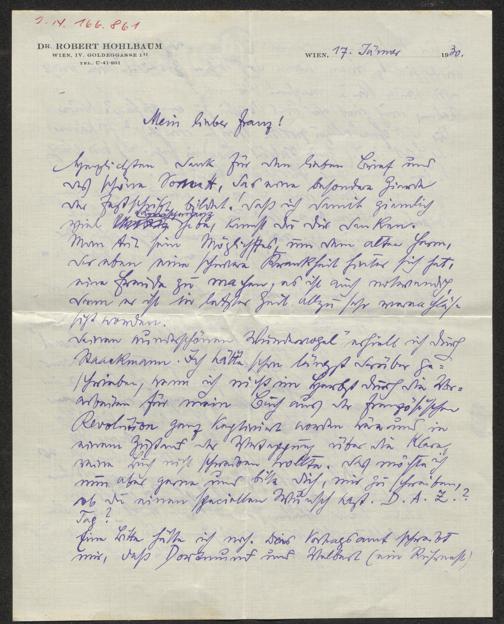 I.N. 166.861
DR. ROBERT HOHLBAUM
WIEN, IV. GOLDEGGASSE 1
TEL. U-41-801
WIEN, 17. Jänner 1930.
Mein lieber Franz!
Herzlichsten Dank für den lieben Brief und
das schöne Sonett, das eine besondere Zierde
der Festschrift bildet. Daß ich damit ziemlich
viel habe, kannst du dir denken.
Man tut sein Möglichstes, um dem alten Herrn,
der eben eine schwere Krankheit hinter sich hat,
eine Freude zu machen, es ist auch notwendig,
denn er ist in letzter Zeit allzu sehr vernachläs-
sigt worden.
Deinen wunderschönen "Wundervogel" erhielt ich durch
Staackmann. Ich hätte schon längst darüber ge-
schrieben, wenn ich nicht im Herbst durch die Vor-
arbeiten für mein Buch aus der französischen
Revolution ganz kaptiviert worden wäre und in
einem Zustand der über die
nicht schreiben wollte. Das möchte ich
nun aber gerne und bitte dich, mir zu schreiben,
ob du einen speziellen Wunsch hast. D. A. Z.?
Tag?
Eine Bitte hätte ich noch. Das Vortragsamt schreibt
mir, daß Dortmund und Velbert (ein